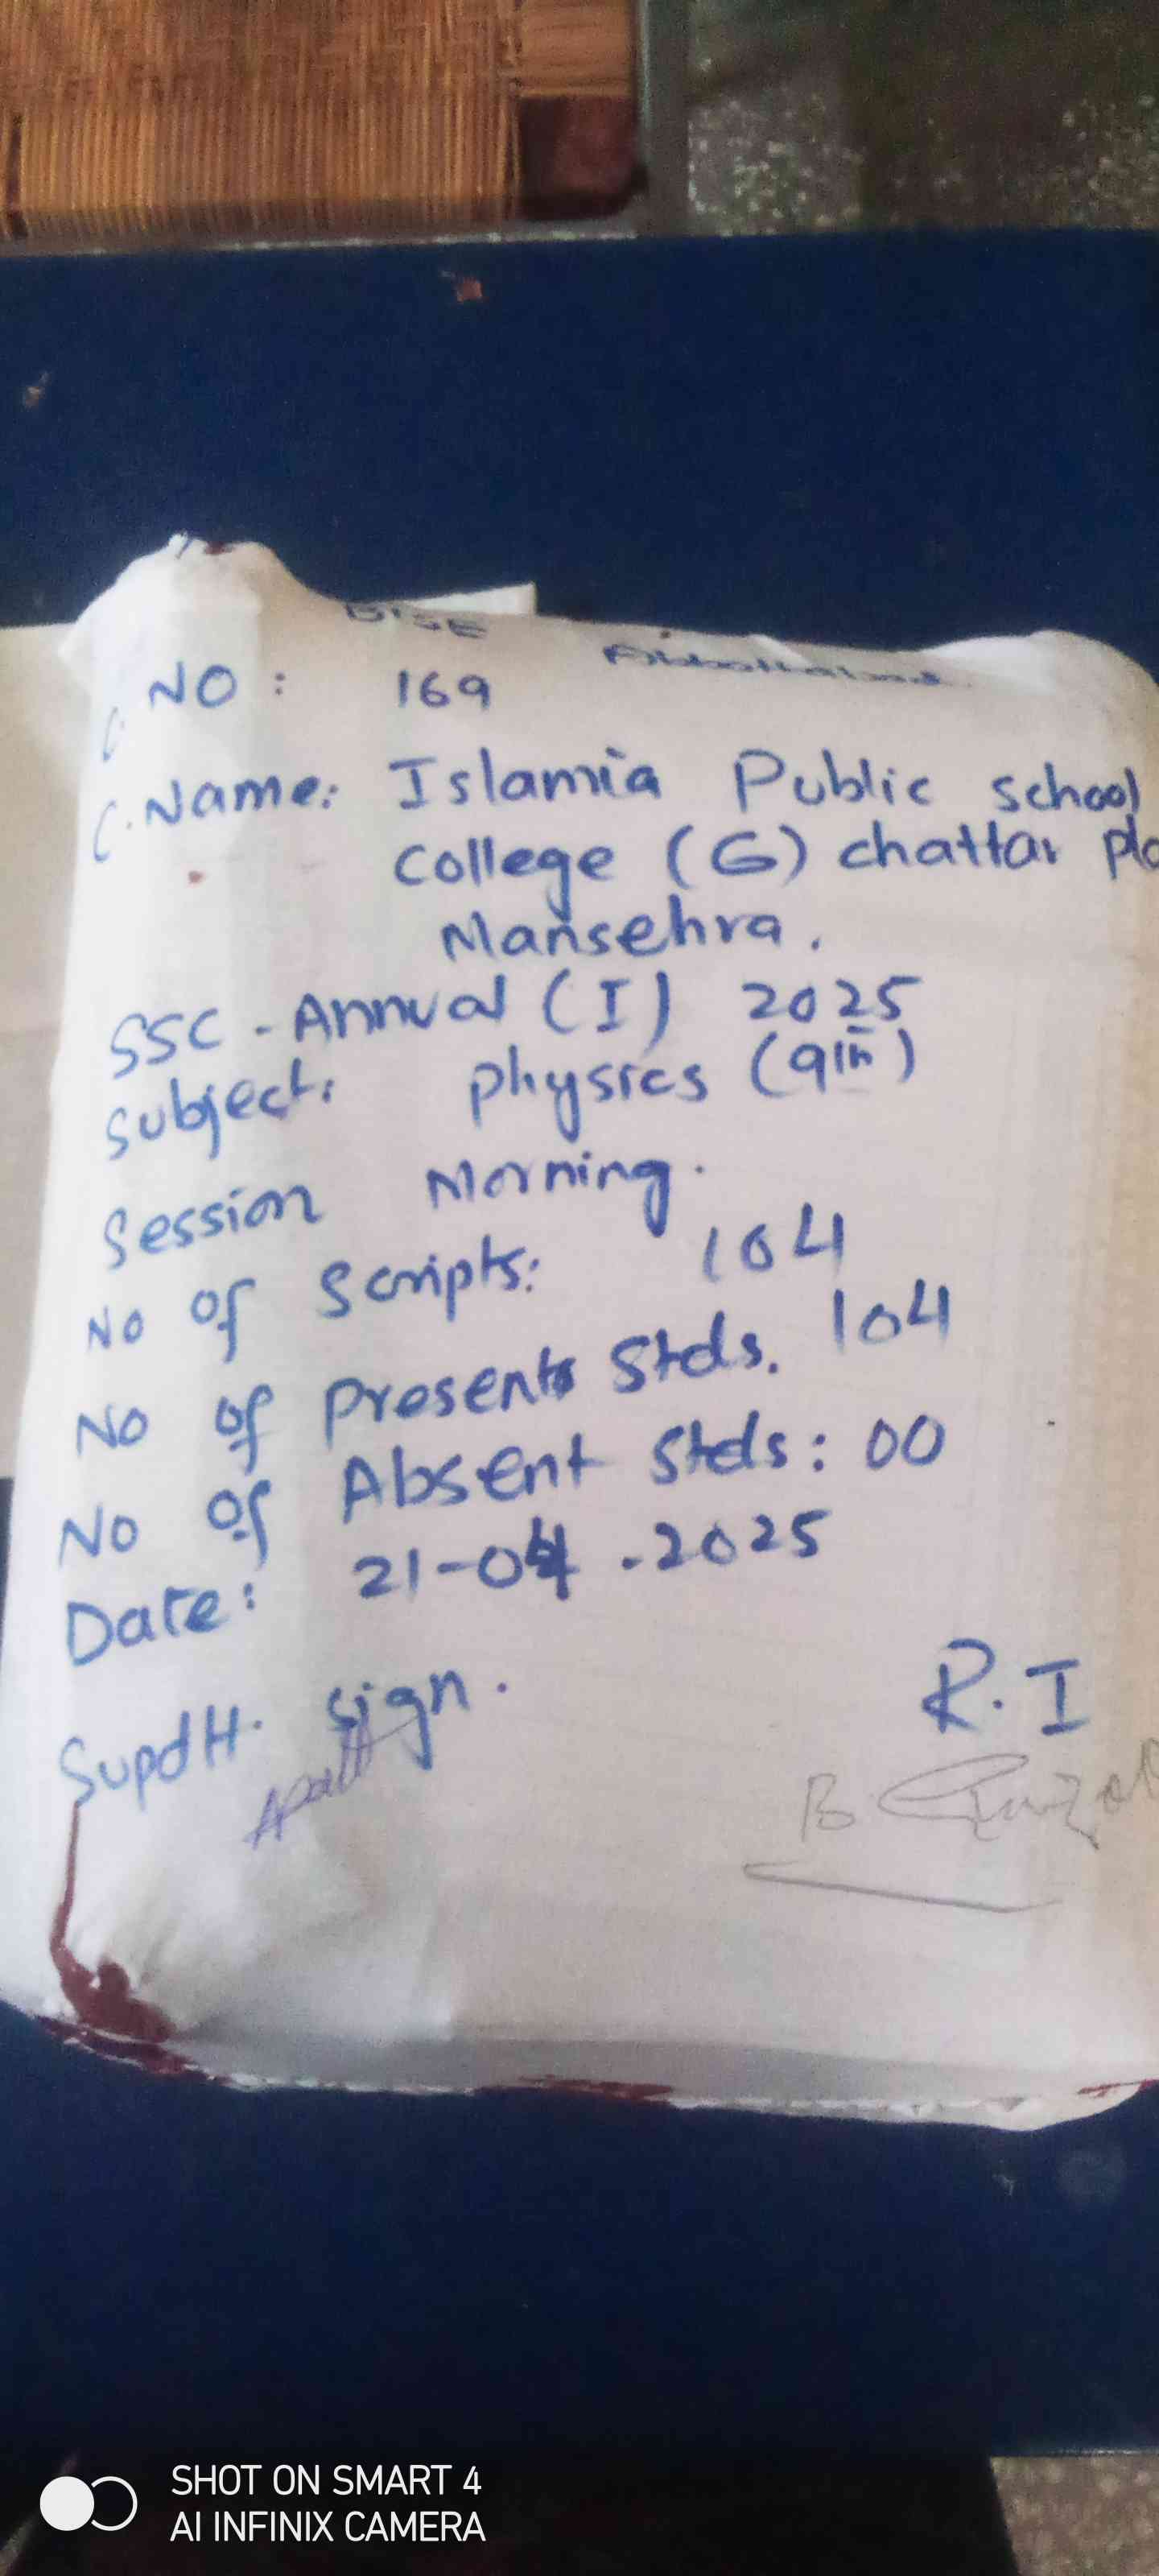 BISE Abbottabad
C. NO : 169
C. Name: Islamia Public school
College (G) chattar pla
Mansehra.
SSC - Annual (I) 2025
Subject: physics (9th)
Session Morning.
No of Scripts: 104
No of Presents Stds. 104
No of Absent Stds: 00
Date: 21-04-2025
Supdtt. sign. R.I
SHOT ON SMART 4
AI INFINIX CAMERA